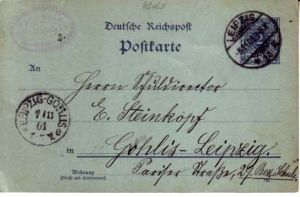 2.
Deutsche Reichspost
Postkarte
LEIPZIG
An
Herrn Schuldirector
E. Steinkopf
LEIPZIG-GOHLIS
7/11
in
Gohlis-Leipzig.
Wohnung
(Straße und Hausnummer)
Pariser Straße, 27. Bez. Schule